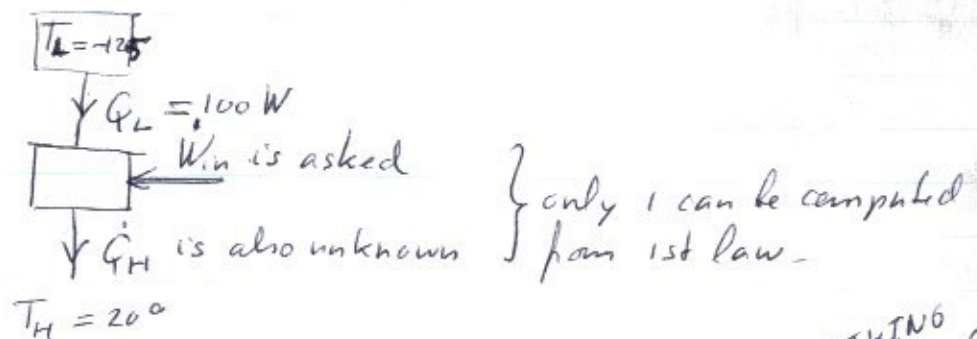 T_L = -125
Q_L = 100 W
Ẇ_in is asked
Q̇_H is also unknown
} only 1 can be computed
from 1st law.
T_H = 20°